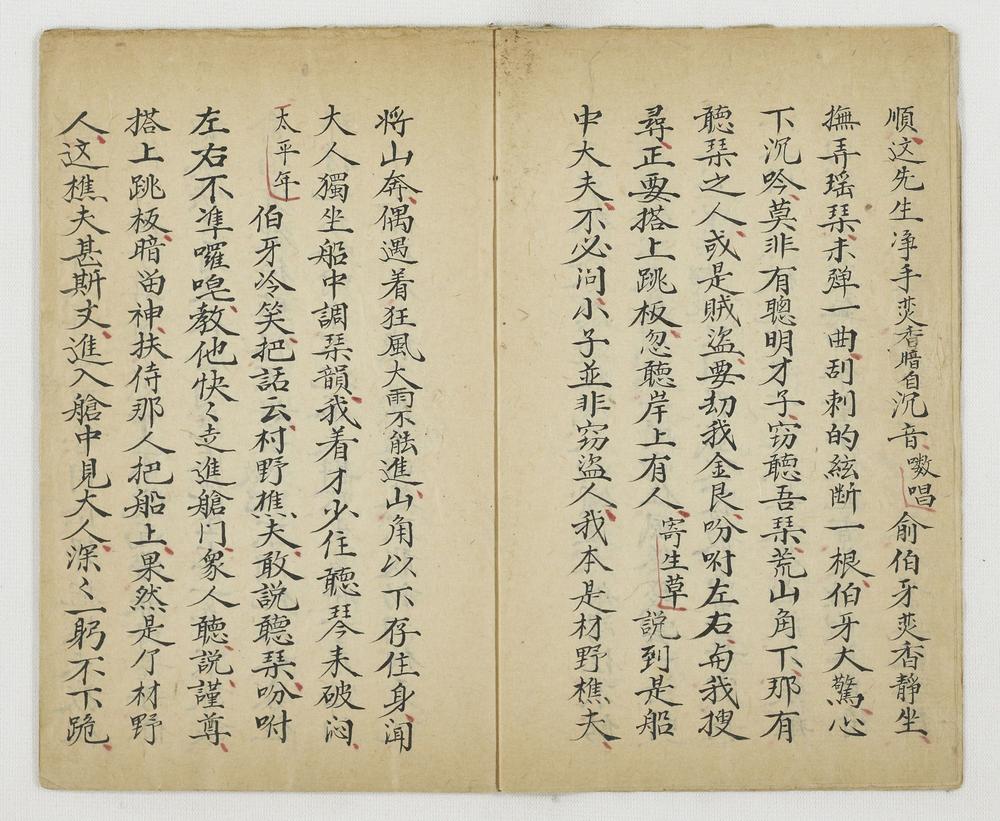 順这先生净手焚香暗自沉音嗷唱俞伯牙焚香靜坐
撫弄瑶琹未弹一曲刮刺的絃断一根伯牙大驚心
下沉吟莫非有聰明才子窃聽吾琹荒山角下那有
聽琹之人或是賊盗要刧我金艮吩咐左右与我搜
尋正要搭上跳板忽聽岸上有人寄生草説到是船
中大夫不必问小子並非窃盗人我本是材野樵夫
将山奔偶遇着狂風大雨不能進山角以下存住身闻
大人獨坐船中調琹韻我着才少住聽琴来破闷
太平年伯牙冷笑把話云村野樵夫敢説聽琹吩咐
左右不凖囉唣教他快〻走進艙门衆人聽説謹尊
搭上跳板暗留神扶侍那人把船上果然是亇材野
人这樵夫甚斯文進入艙中見大人深〻一躬不下跪